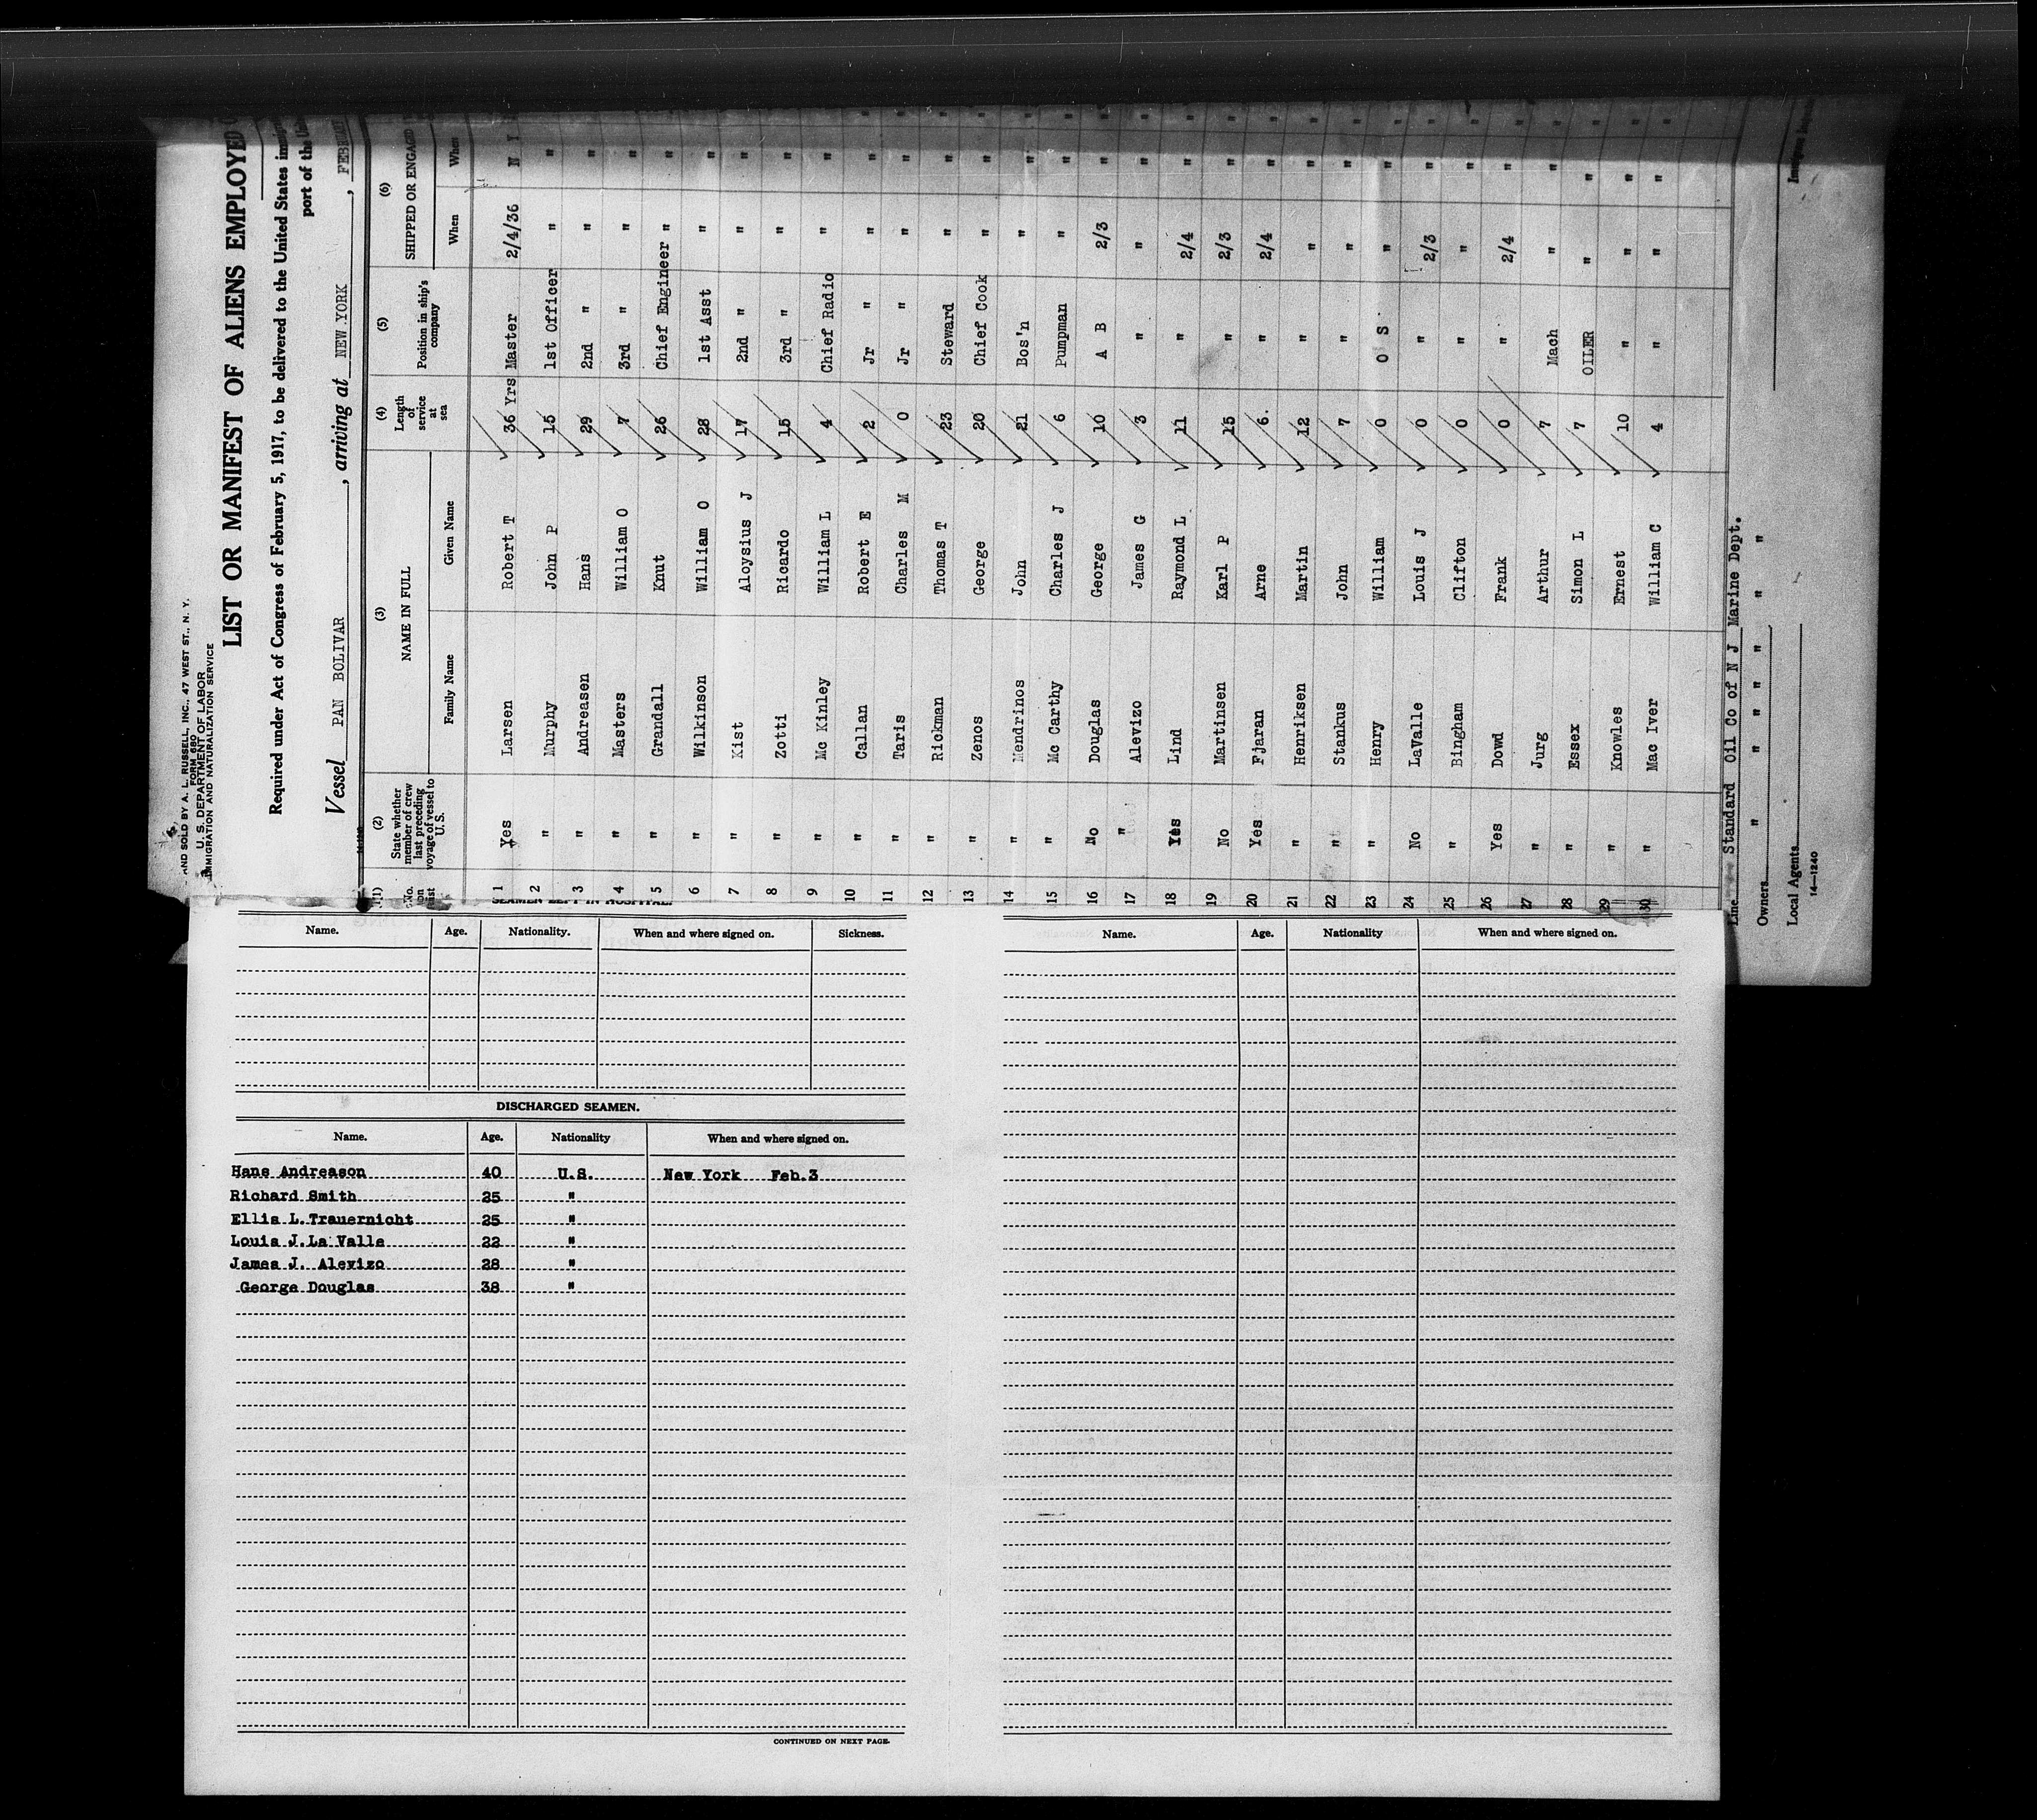 AND SOLD BY A. L. RUSSELL, INC., 47 WEST ST., N. Y.
FORM 680
U. S. DEPARTMENT OF LABOR
IMMIGRATION AND NATURALIZATION SERVICE
LIST OR MANIFEST OF ALIENS EMPLOYED
Required under Act of Congress of February 5, 1917, to be delivered to the United States
port of the
Vessel PAN BOLIVAR, arriving at NEW YORK,
(1) (2) (3) (4) (5) (6)
No. on list State whether member of crew last preceding voyage of vessel to U.S. NAME IN FULL Length of service at sea Position in ship's company SHIPPED OR ENGAGED
Family Name Given Name When When
1 Yes Larsen Robert T 36 Yrs Master 2/4/36 N Y
2 " Murphy John P 15 1st Officer " "
3 " Andreasen Hans 29 2nd " " "
4 " Masters William O 7 3rd " " "
5 " Grandall Knut 26 Chief Engineer " "
6 " Wilkinson William O 28 1st Asst " "
7 " Kist Aloysius J 17 2nd " " "
8 " Zotti Ricardo 15 3rd " " "
9 " Mc Kinley William L 4 Chief Radio " "
10 " Callan Robert E 2 Jr " " "
11 " Taris Charles M 0 Jr " " "
12 " Rickman Thomas T 23 Steward " "
13 " Zenos George 20 Chief Cook " "
14 " Mendrinos John 21 Bos'n " "
15 " Mc Carthy Charles J 6 Pumpman " "
16 No Douglas George 10 A B 2/3 "
17 " Alevizo James G 3 " " "
18 Yes Lind Raymond L 11 " 2/4 "
19 No Martinsen Karl P 15 " 2/3 "
20 Yes Fjaran Arne 6. " 2/4 "
21 " Henriksen Martin 12 " " "
22 " Stankus John 7 " " "
23 " Henry William 0 O S " "
24 No LaValle Louis J 0 " 2/3 "
25 " Bingham Clifton 0 " " "
26 Yes Dowd Frank 0 " 2/4 "
27 " Jurg Arthur 7 Mach " "
28 " Essex Simon L 7 OILER " "
29 " Knowles Ernest 10 " " "
30 " Mac Iver William C 4 " " "
Line Standard Oil Co of N J Marine Dept.
Owners " " " " " "
Local Agents
14—1240
SEAMEN LEFT IN HOSPITAL.
Name. Age. Nationality. When and where signed on. Sickness.
DISCHARGED SEAMEN.
Name. Age. Nationality When and where signed on.
Hans Andreason 40 U.S. New York Feb.3
Richard Smith 25 "
Ellis L.Trauernicht 25 "
Louis J.La Valle 22 "
James J. Alevizo 28 "
George Douglas 38 "
CONTINUED ON NEXT PAGE.
Name. Age. Nationality When and where signed on.